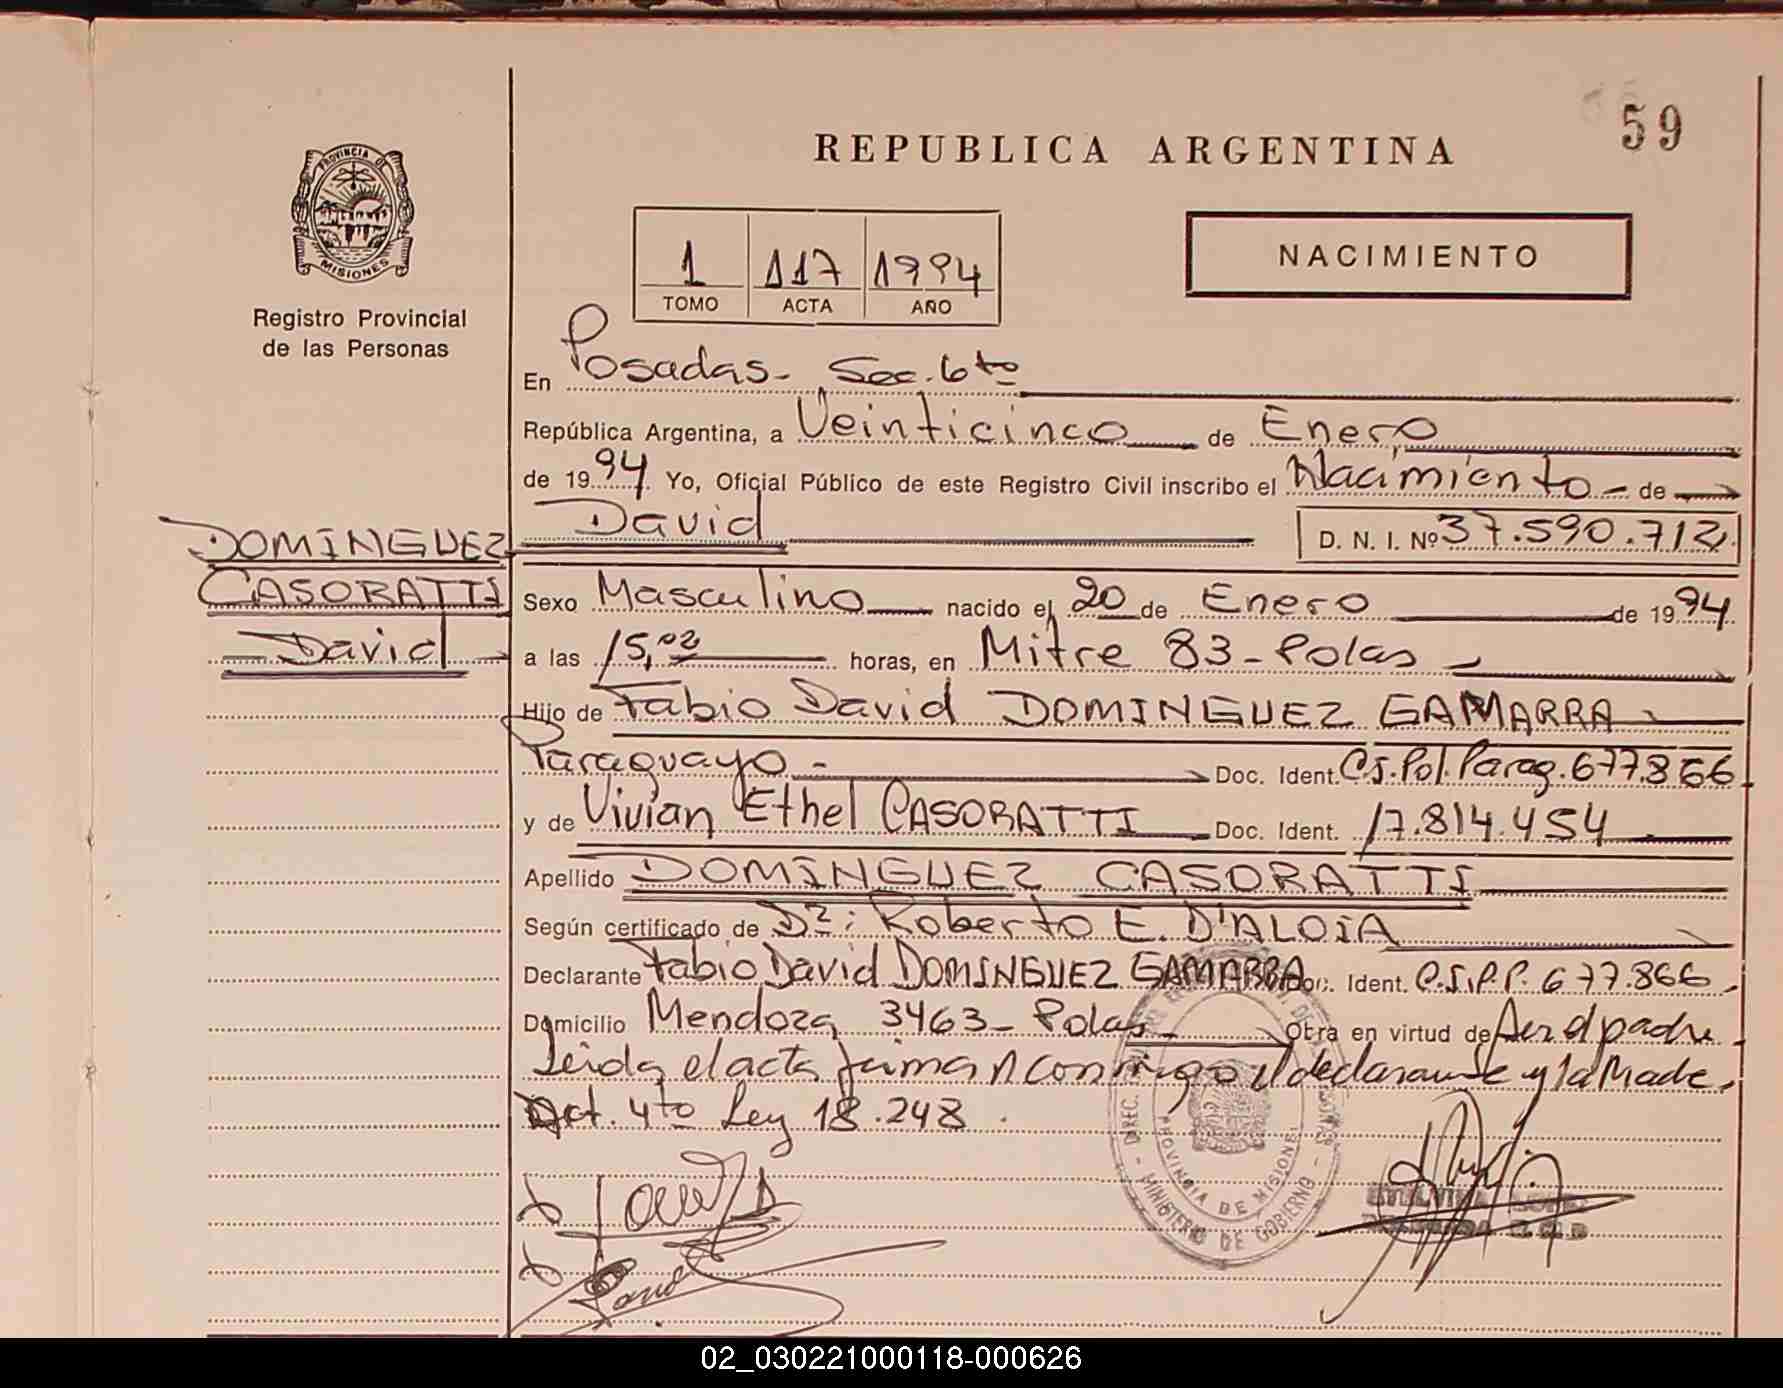 59
REPUBLICA ARGENTINA
PROVINCIA DE
MISIONES
Registro Provincial
de las Personas
1 117 1994
TOMO ACTA AÑO
NACIMIENTO
En Posadas- Sec. 6to
República Argentina, a Veinticinco de Enero
de 1994 Yo, Oficial Público de este Registro Civil inscribo el Nacimiento - de
David D. N. I. Nº 37.590.712
DOMINGUEZ
CASORATTI
David
Sexo Masculino nacido el 20 de Enero de 1994
a las 15,02 horas, en Mitre 83 - Pdas
Hijo de Fabio David DOMINGUEZ GAMARRA
Paraguayo - Doc. Ident. C.I. Pol. Parag. 677.866
y de Vivian Ethel CASORATTI Doc. Ident. 17.814.454
Apellido DOMINGUEZ CASORATTI
Según certificado de Dr: Roberto E. D'ALOIA
Declarante Fabio David DOMINGUEZ GAMARRA Doc. Ident. C.I.P.P. 677.866
Domicilio Mendoza 3463 - Pdas - Obra en virtud de ser el padre
Leida el acta firman conmigo el declarante y la Madre.
Art. 4to Ley 18.248.
PROVINCIA DE MISIONES
MINISTERIO DE GOBIERNO
02_030221000118-000626